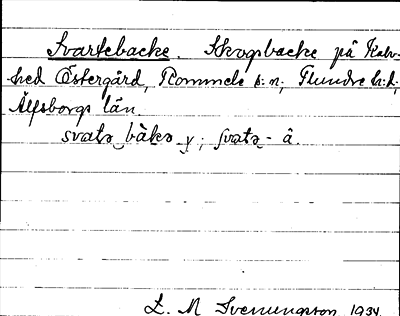 Svartebacke. Skogsbacke på Kalv-
hed Östergård, Rommele s:n, Flundre h:d,
Älfsborgs län.
svatə bàkə y; svatə - â.
L. M Svenungsson 1934.